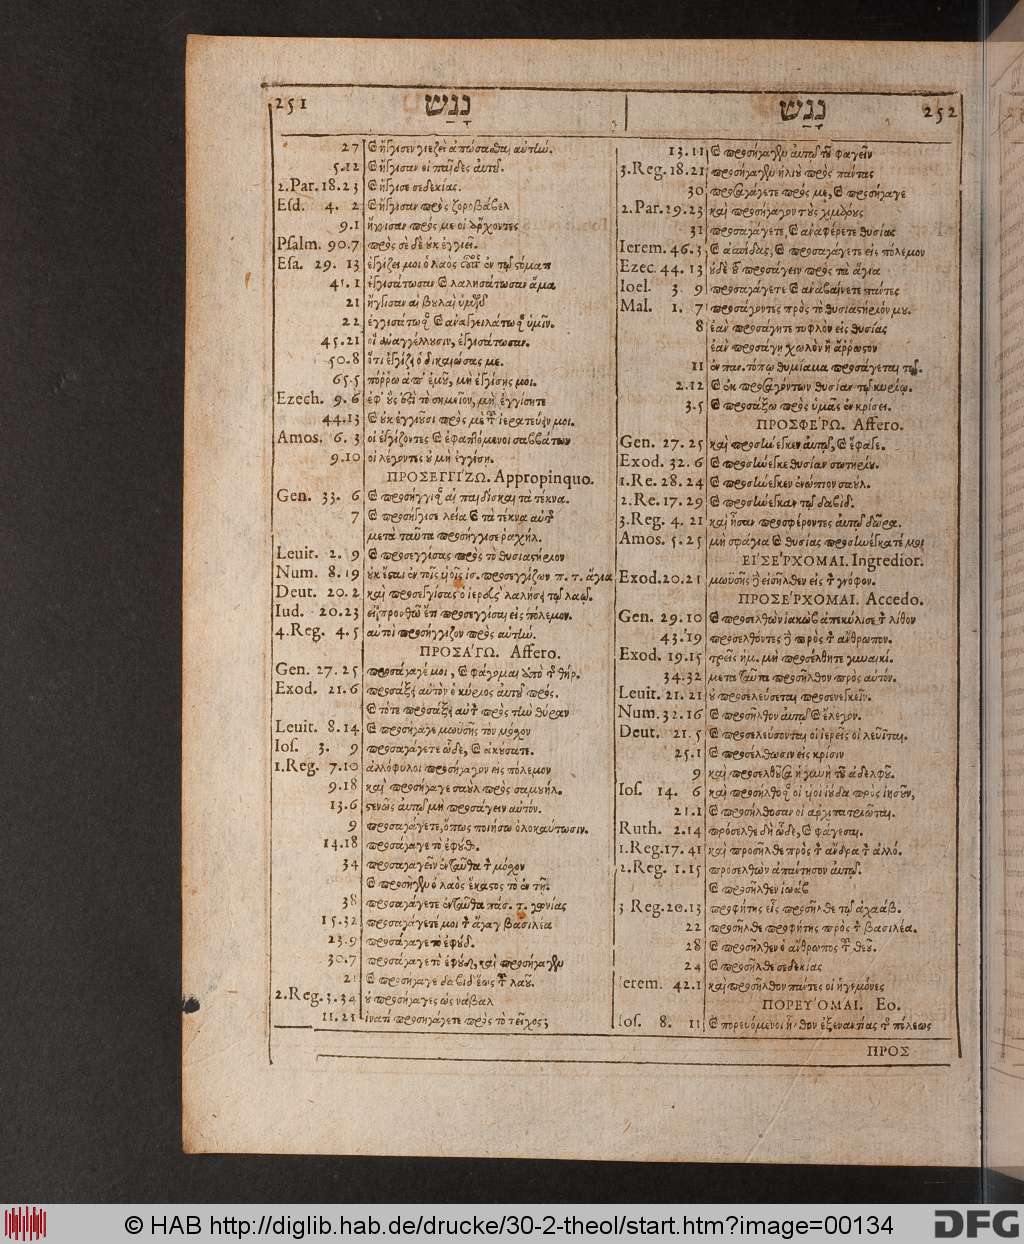 251 נָגַשׁ
27 καὶ ἤγγισεν γιεζεὶ ἀπώσασθαι αὐτήν.
5.12 καὶ ἤγγισαν οἱ παῖδες αὐτοῦ.
2.Par. 18.23 καὶ ἤγγισε σεδεκίας.
Esd. 4. 2 καὶ ἤγγισαν πρὸς ζοροβάβελ
9.1 ἤγγισαν πρός με οἱ ἄρχοντες
Psalm. 90.7 πρὸς σὲ δὲ οὐκ ἐγγιεῖ.
Esa. 29. 13 ἐγγίζει μοι ὁ λαὸς οὗτος ἐν τῷ στόματι
41.1 ἐγγισάτωσαν καὶ λαλησάτωσαν ἅμα
21 ἤγγισαν αἱ βουλαὶ ὑμῶν
22 ἐγγισάτωσαν καὶ ἀναγγειλάτωσαν ὑμῖν.
45.21 οἱ ἀναγγέλλουσιν, ἐγγισάτωσαν.
50.8 ὅτι ἐγγίζει ὁ δικαιώσας με.
65.5 πόρρω ἀπ' ἐμοῦ, μὴ ἐγγίσῃς μοι.
Ezech. 9.6 ἐφ' οὓς ἐστὶ τὸ σημεῖον, μὴ ἐγγίσητε
44.13 καὶ οὐκ ἐγγιοῦσι πρός με τοῦ ἱερατεύειν μοι.
Amos. 6. 3 οἱ ἐγγίζοντες καὶ ἐφαπτόμενοι σαββάτων
9.10 οἱ λέγοντες οὐ μὴ ἐγγίσῃ.
ΠΡΟΣΕΓΓΊΖΩ. Appropinquo.
Gen. 33. 6 καὶ προσήγγισαν αἱ παιδίσκαι τὰ τέκνα.
7 καὶ προσήγγισε λεία καὶ τὰ τέκνα αὐτῆς
μετὰ ταῦτα προσήγγισε ραχήλ.
Leuit. 2. 9 καὶ προσεγγίσας πρὸς τὸ θυσιαστήριον
Num. 8.19 οὐκ ἔσται ἐν τοῖς υἱοῖς ἰσ. προσεγγίζων π. τ. ἅγια
Deut. 20.2 καὶ προσεγγίσας ὁ ἱερεὺς λαλήσῃ τῷ λαῷ.
Iud. 20.23 εἰ προσθῶ ἔτι προσεγγίσαι εἰς πόλεμον.
4.Reg. 4.5 αὐτοὶ προσήγγιζον πρὸς αὐτήν.
ΠΡΟΣΆΓΩ. Affero.
Gen. 27.25 προσάγαγέ μοι, καὶ φάγομαι ἀπὸ τῆς θήρ.
Exod. 21.6 προσάξει αὐτὸν ὁ κύριος αὐτοῦ πρός.
καὶ τότε προσάξει αὐτὸν πρὸς τὴν θύραν
Leuit. 8.14 καὶ προσήγαγε μωϋσῆς τὸν μόσχον
Ios. 3. 9 προσαγάγετε ὧδε, καὶ ἀκούσατε.
1.Reg. 7.10 ἀλλόφυλοι προσήγαγον εἰς πόλεμον
9.18 καὶ προσήγαγε σαοὺλ πρὸς σαμουήλ.
13.6 στενῶς αὐτῷ μὴ προσάγειν αὐτόν.
9 προσαγάγετε, ὅπως ποιήσω ὁλοκαύτωσιν.
14.18 προσάγαγε τὸ ἐφούδ.
34 προσαγαγεῖν ἐνταῦθα τὸν μόσχον
καὶ προσῆγεν ὁ λαὸς ἕκαστος τὸ ἐν τῇ.
38 προσαγάγετε ἐνταῦθα πάσ. τ. γωνίας
15.32 προσαγάγετέ μοι τὸν ἄγαγ βασιλέα
23.9 προσάγαγε τὸ ἐφούδ.
30.7 προσάγαγε τὸ ἐφούδ, καὶ προσήγαγεν
21 καὶ προσήγαγε δαβὶδ ἕως τοῦ λαοῦ.
2.Reg. 3.34 οὐ προσήγαγες ὡς νάβαλ
11.21 ἱνατί προσηγάγετε πρὸς τὸ τεῖχος;
נָגַשׁ 252
13.11 καὶ προσήγαγεν αὐτῷ τοῦ φαγεῖν
3.Reg. 18.21 προσήγαγεν ἠλιοὺ πρὸς πάντας
30 προσαγάγετε πρός με, καὶ προσήγαγε
2.Par. 29.23 καὶ προσήγαγον τοὺς χιμάρους
31 προσαγάγετε, καὶ ἀναφέρετε θυσίας
Ierem. 46.3 καὶ ἀσπίδας, καὶ προσαγάγετε εἰς πόλεμον
Ezec. 44. 13 οὐδὲ τοῦ προσάγειν πρὸς τὰ ἅγια
Ioel. 3. 9 προσαγάγετε καὶ ἀναβαίνετε πάντες
Mal. 1. 7 προσάγοντες πρὸς τὸ θυσιαστήριόν μου.
8 ἐὰν προσάγητε τυφλὸν εἰς θυσίας
ἐὰν προσάγῃ χωλὸν ἢ ἄρρωστον
11 ἐν παν. τόπῳ θυμίαμα προσάγεται τῷ.
2.12 καὶ ἐκ προσαγόντων θυσίαν τῷ κυρίῳ.
3.5 καὶ προσάξω πρὸς ὑμᾶς ἐν κρίσει.
ΠΡΟΣΦΈΡΩ. Affero.
Gen. 27.25 καὶ προσήνεγκεν αὐτῷ, καὶ ἔφαγε.
Exod. 32.6 καὶ προσήνεγκε θυσίαν σωτηρίου.
1.Re. 28.24 καὶ προσήνεγκεν ἐνώπιον σαούλ.
2.Re. 17.29 καὶ προσήνεγκαν τῷ δαβίδ.
3.Reg. 4.21 καὶ ἦσαν προσφέροντες αὐτῷ δῶρα.
Amos. 5.25 μὴ σφάγια καὶ θυσίας προσηνέγκατέ μοι
ΕἸΣΈΡΧΟΜΑΙ. Ingredior.
Exod. 20.21 μωϋσῆς δὲ εἰσῆλθεν εἰς τὸν γνόφον.
ΠΡΟΣΈΡΧΟΜΑΙ. Accedo.
Gen. 29.10 καὶ προσελθὼν ἰακὼβ ἀπεκύλισε τὸν λίθον
43.19 προσελθόντες δὲ πρὸς τὸν ἄνθρωπον.
Exod. 19.15 τρεῖς ἡμ. μὴ προσέλθητε γυναικί.
34.32 μετὰ ταῦτα προσῆλθον πρὸς αὐτόν.
Leuit. 21.21 οὐ προσελεύσεται προσενεγκεῖν.
Num. 32.16 καὶ προσῆλθον αὐτῷ καὶ ἔλεγον.
Deut. 21.5 καὶ προσελεύσονται οἱ ἱερεῖς οἱ λευῖται.
25.1 καὶ προσέλθωσιν εἰς κρίσιν
9 καὶ προσελθοῦσα ἡ γυνὴ τοῦ ἀδελφοῦ.
Ios. 14. 6 καὶ προσήλθοσαν οἱ υἱοὶ ἰούδα πρὸς ἰησοῦν,
21.1 καὶ προσήλθοσαν οἱ ἀρχιπατριῶται.
Ruth. 2.14 πρόσελθε δὴ ὧδε, καὶ φάγεσαι.
1.Reg. 17.41 καὶ προσῆλθε πρὸς τὸν ἄνδρα τὸν ἀλλό.
2.Reg. 1.15 προσελθὼν ἀπάντησον αὐτῷ.
καὶ προσῆλθεν ἰωάβ
3.Reg. 20.13 προφήτης εἷς προσῆλθε τῷ ἀχαάβ.
22 προσῆλθε προφήτης πρὸς τὸν βασιλέα.
28 καὶ προσῆλθεν ὁ ἄνθρωπος τοῦ θεοῦ.
24 καὶ προσῆλθε σεδεκίας
Ierem. 42.1 καὶ προσῆλθον πάντες οἱ ἡγεμόνες
ΠΟΡΕΎΟΜΑΙ. Eo.
Ios. 8. 11 καὶ πορευόμενοι ἦλθον ἐξεναντίας τῆς πόλεως
ΠΡΟΣ
© HAB http://diglib.hab.de/drucke/30-2-theol/start.htm?image=00134
DFG